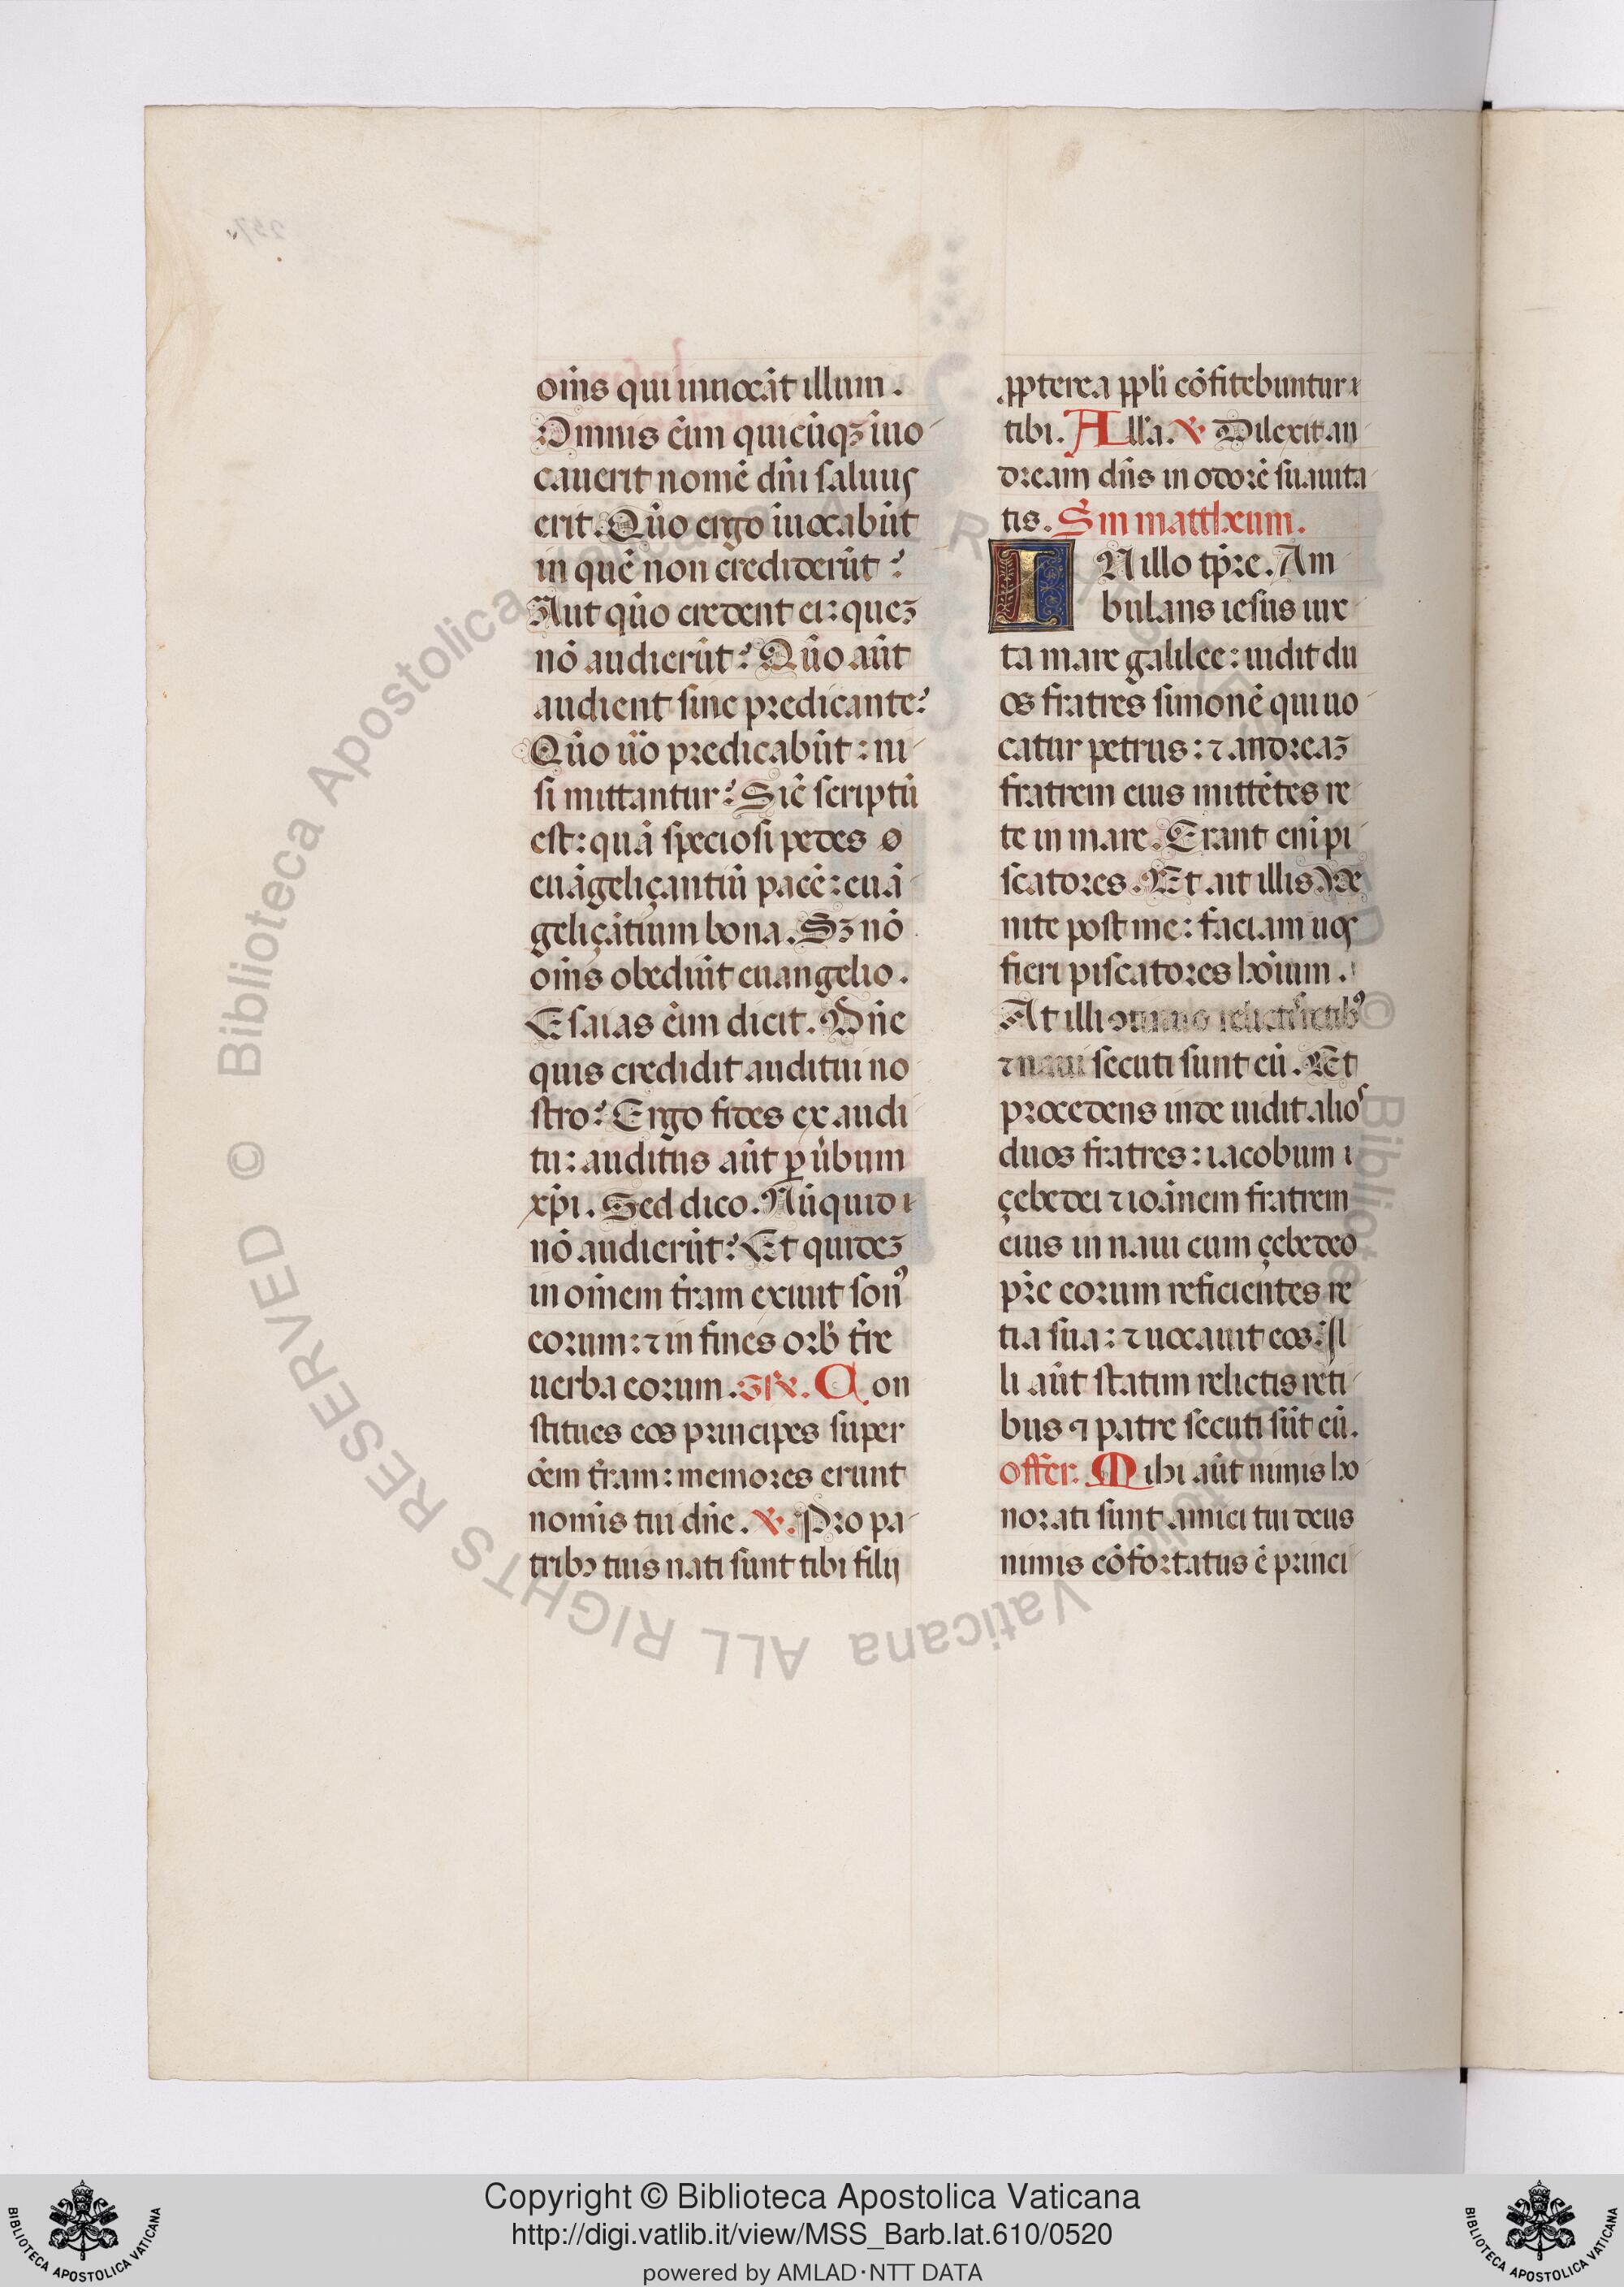 om̄s qui inuocāt illum.
Omnis .n. eīm quicūqꝫ īuo
cauerit nomē dn̄i saluus
erit. Quō ergo īuocabūt
in quē non crediderūt?
Aut quō credent ei: queꝫ
nō audierūt? Quō aūt
audient sine predicante?
Quō uo̅ predicabūt: ni
si mittantur? Sic̄ scriptū
est: quā speciosi pedes
euāgeliçantiū pacē: euā
geliçātium bona. Sꝫ nō
om̄s obediūt euangelio.
Esaias eīm dicit. Dn̄e
quis credidit auditui no
stro? Ergo fides ex audi
tu: auditus aūt ꝑ u̇bum
xp̄i. Sed dico. Nūquid
nō audierūt? Et quideꝫ
in om̄em tr̄am exiuit sonꝰ
eorum: ⁊ in fines orb̄ tr̄e
uerba eorum. GR̄. Con
stitues eos principes super
oēm tr̄am: memores erunt
nom̄is tui dn̄e. ℣. Pro pa
tribꝫ tuis nati sunt tibi filij
ꝓpterea ppl̄i cōfitebuntur
tibi. All̄a. ℣ Dilexit an
dream dn̄s in odorē suauita
tis. Sm̄ mattheum.
IN illo tp̄re. Am
bulans iesus iux
ta mare galilee: uidit du
os fratres simonē qui uo
catur petrus: ⁊ andreaꝫ
fratrem eius mittētes re
te in mare. Erant enī pi
scatores. Et ait illis. Ve
nite post me: faciam uos
fieri piscatores hoīum.
At illi relictꝭ retibꝰ
⁊ naui secuti sunt eū. Et
procedens inde uidit alios
duos fratres: iacobum
çebedei ⁊ ioānem fratrem
eius in naui cum çebedeo
pr̄e eorum reficientes re
tia sua: ⁊ uocauit eos. Il
li aūt statim relictis reti
bus ⁊ patre secuti sūt eū.
Offer. Mihi aūt nimis ho
norati sunt amici tui deus
nimis cōfortatus ē princi
257
Copyright © Biblioteca Apostolica Vaticana
http://digi.vatlib.it/view/MSS_Barb.lat.610/0520
powered by AMLAD·NTT DATA
BIBLIOTECA APOSTOLICA VATICANA
BIBLIOTECA APOSTOLICA VATICANA
© Biblioteca Apostolica Vaticana ALL RIGHTS RESERVED